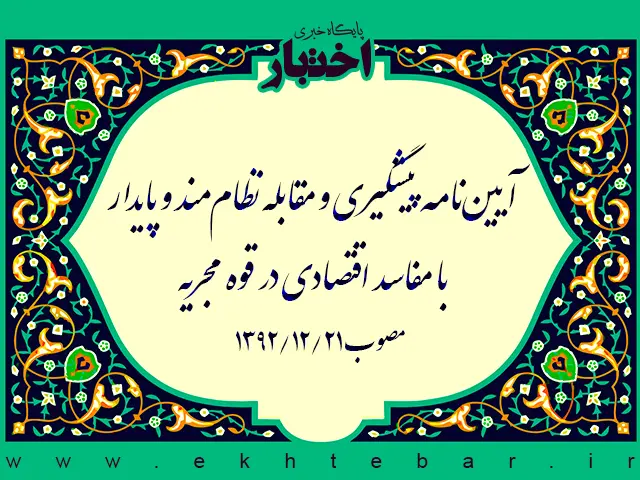 پایگاه خبری
اختبار
آیین‌نامه پیشگیری و مقابله نظام‌مند و پایدار
با مفاسد اقتصادی در قوه مجریه
مصوب ۱۳۹۲/۱۲/۲۱
www.ekhtebar.ir